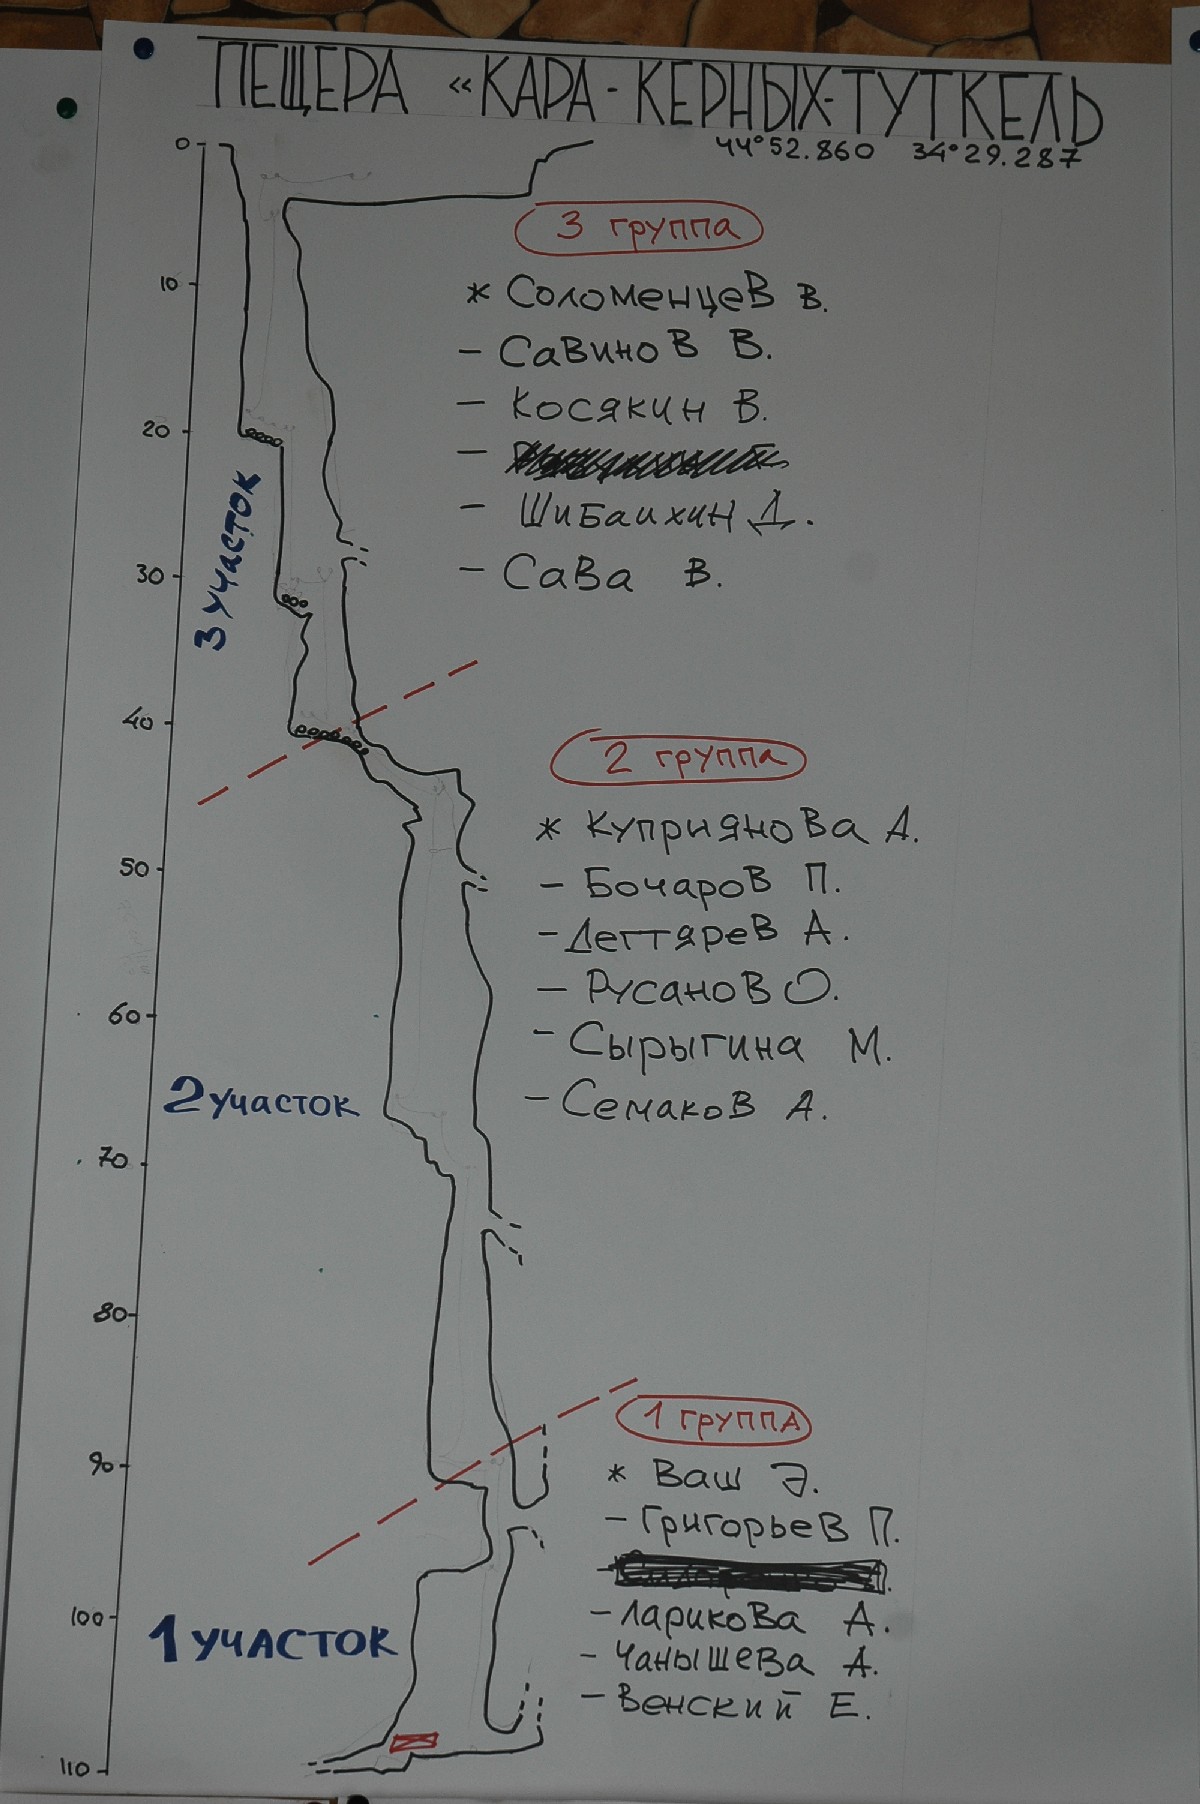 ПЕЩЕРА «КАРА-КЕРНЫХ-ТУТКЕЛЬ
44°52.860 34°29.287
0
3 группа
10
* Соломенцев В.
- Савинов В.
- Косякин В.
20
-
- Шибаихин Д.
- Сава В.
3 участок
30
40
2 группа
* Куприянова А.
- Бочаров П.
50
- Дегтярев А.
- Русанов О.
60
- Сырыгина М.
2 участок
- Семаков А.
70
80
1 группа
90
* Ваш Э.
- Григорьев П.
-
100
- Ларикова А.
1 участок
- Чанышева А.
- Венский Е.
110